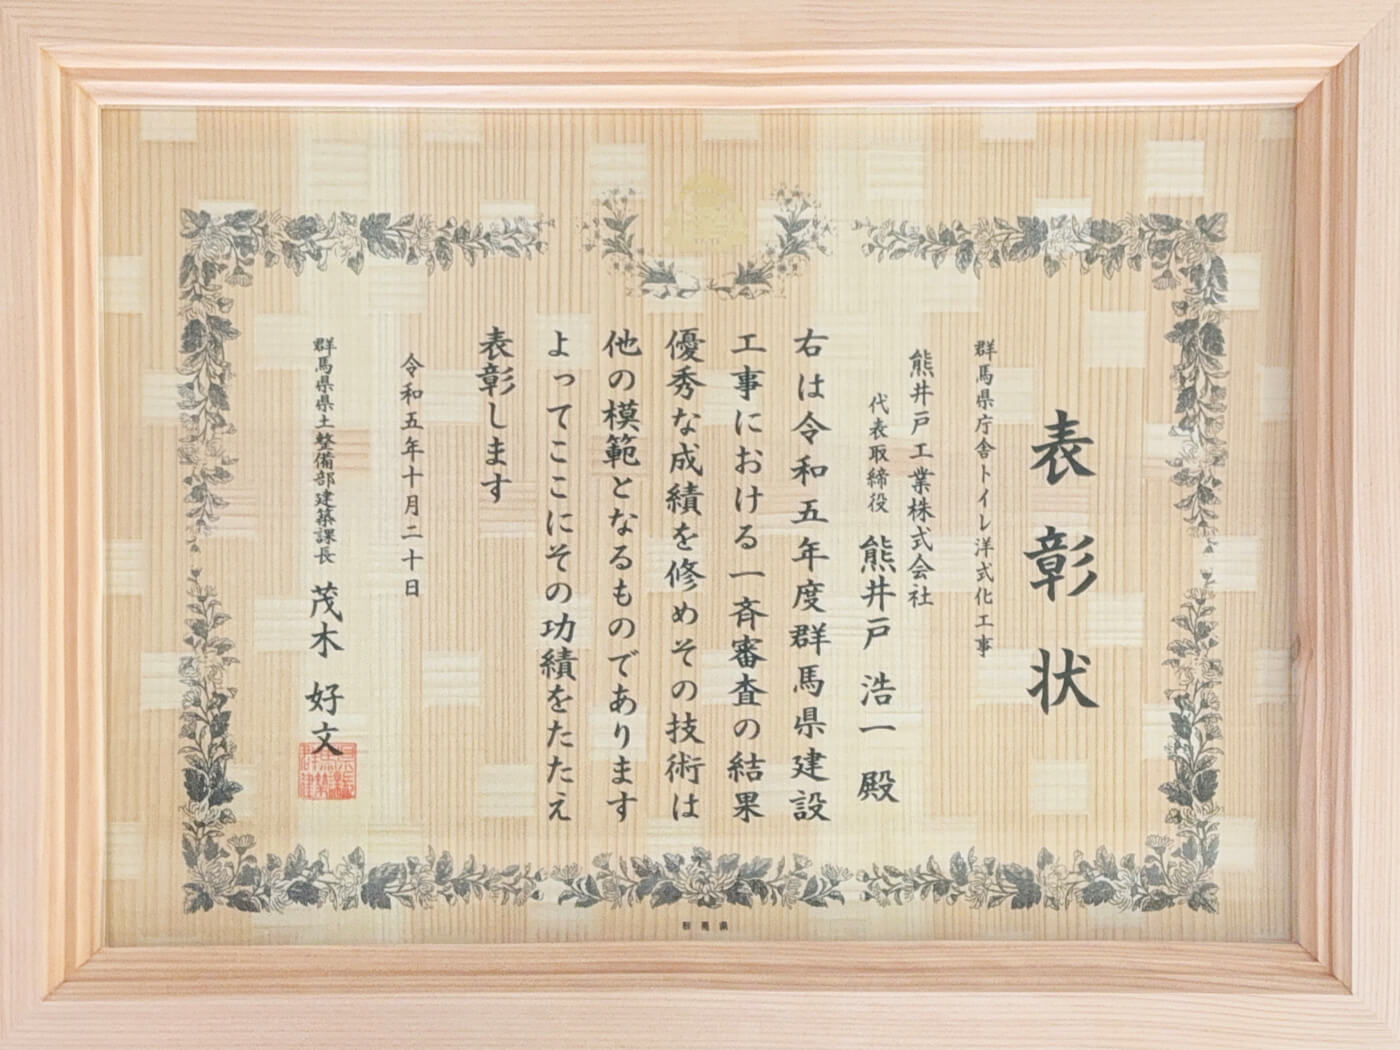 表彰状
群馬県庁舎トイレ洋式化工事
熊井戸工業株式会社
代表取締役 熊井戸 浩一 殿
右は令和五年度群馬県建設
工事における一斉審査の結果
優秀な成績を修めその技術は
他の模範となるものであります
よってここにその功績をたたえ
表彰します
令和五年十月二十日
群馬県県土整備部建築課長 茂木 好文
群馬県